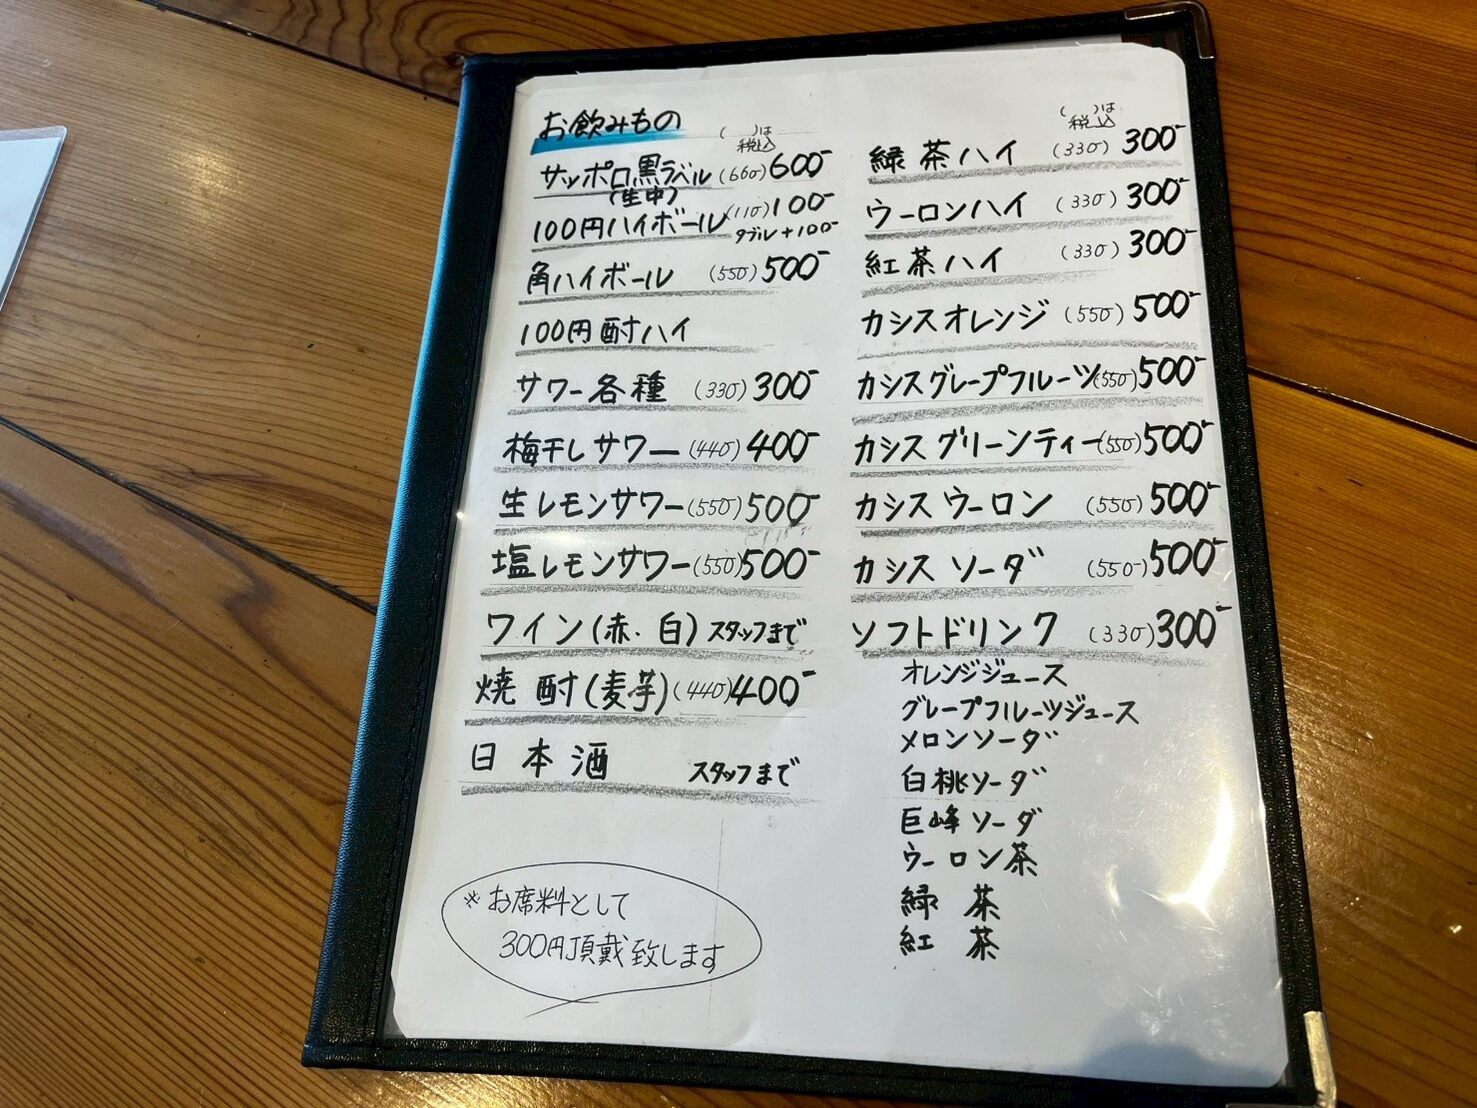 お飲みもの
( )は
税込
サッポロ黒ラベル (660) 600-
(生中)
100円ハイボール (110) 100-
ダブル+100-
角ハイボール (550) 500-
100円酎ハイ
サワー各種 (330) 300-
梅干しサワー (440) 400-
生レモンサワー (550) 500-
塩レモンサワー (550) 500-
ワイン(赤・白) スタッフまで
焼酎(麦芋) (440) 400-
日本酒 スタッフまで
※お席料として
300円頂戴致します
( )は
税込
緑茶ハイ (330) 300-
ウーロンハイ (330) 300-
紅茶ハイ (330) 300-
カシスオレンジ (550) 500-
カシスグレープフルーツ (550) 500-
カシスグリーンティー (550) 500-
カシスウーロン (550) 500-
カシスソーダ (550) 500-
ソフトドリンク (330) 300-
オレンジジュース
グレープフルーツジュース
メロンソーダ
白桃ソーダ
巨峰ソーダ
ウーロン茶
緑茶
紅茶